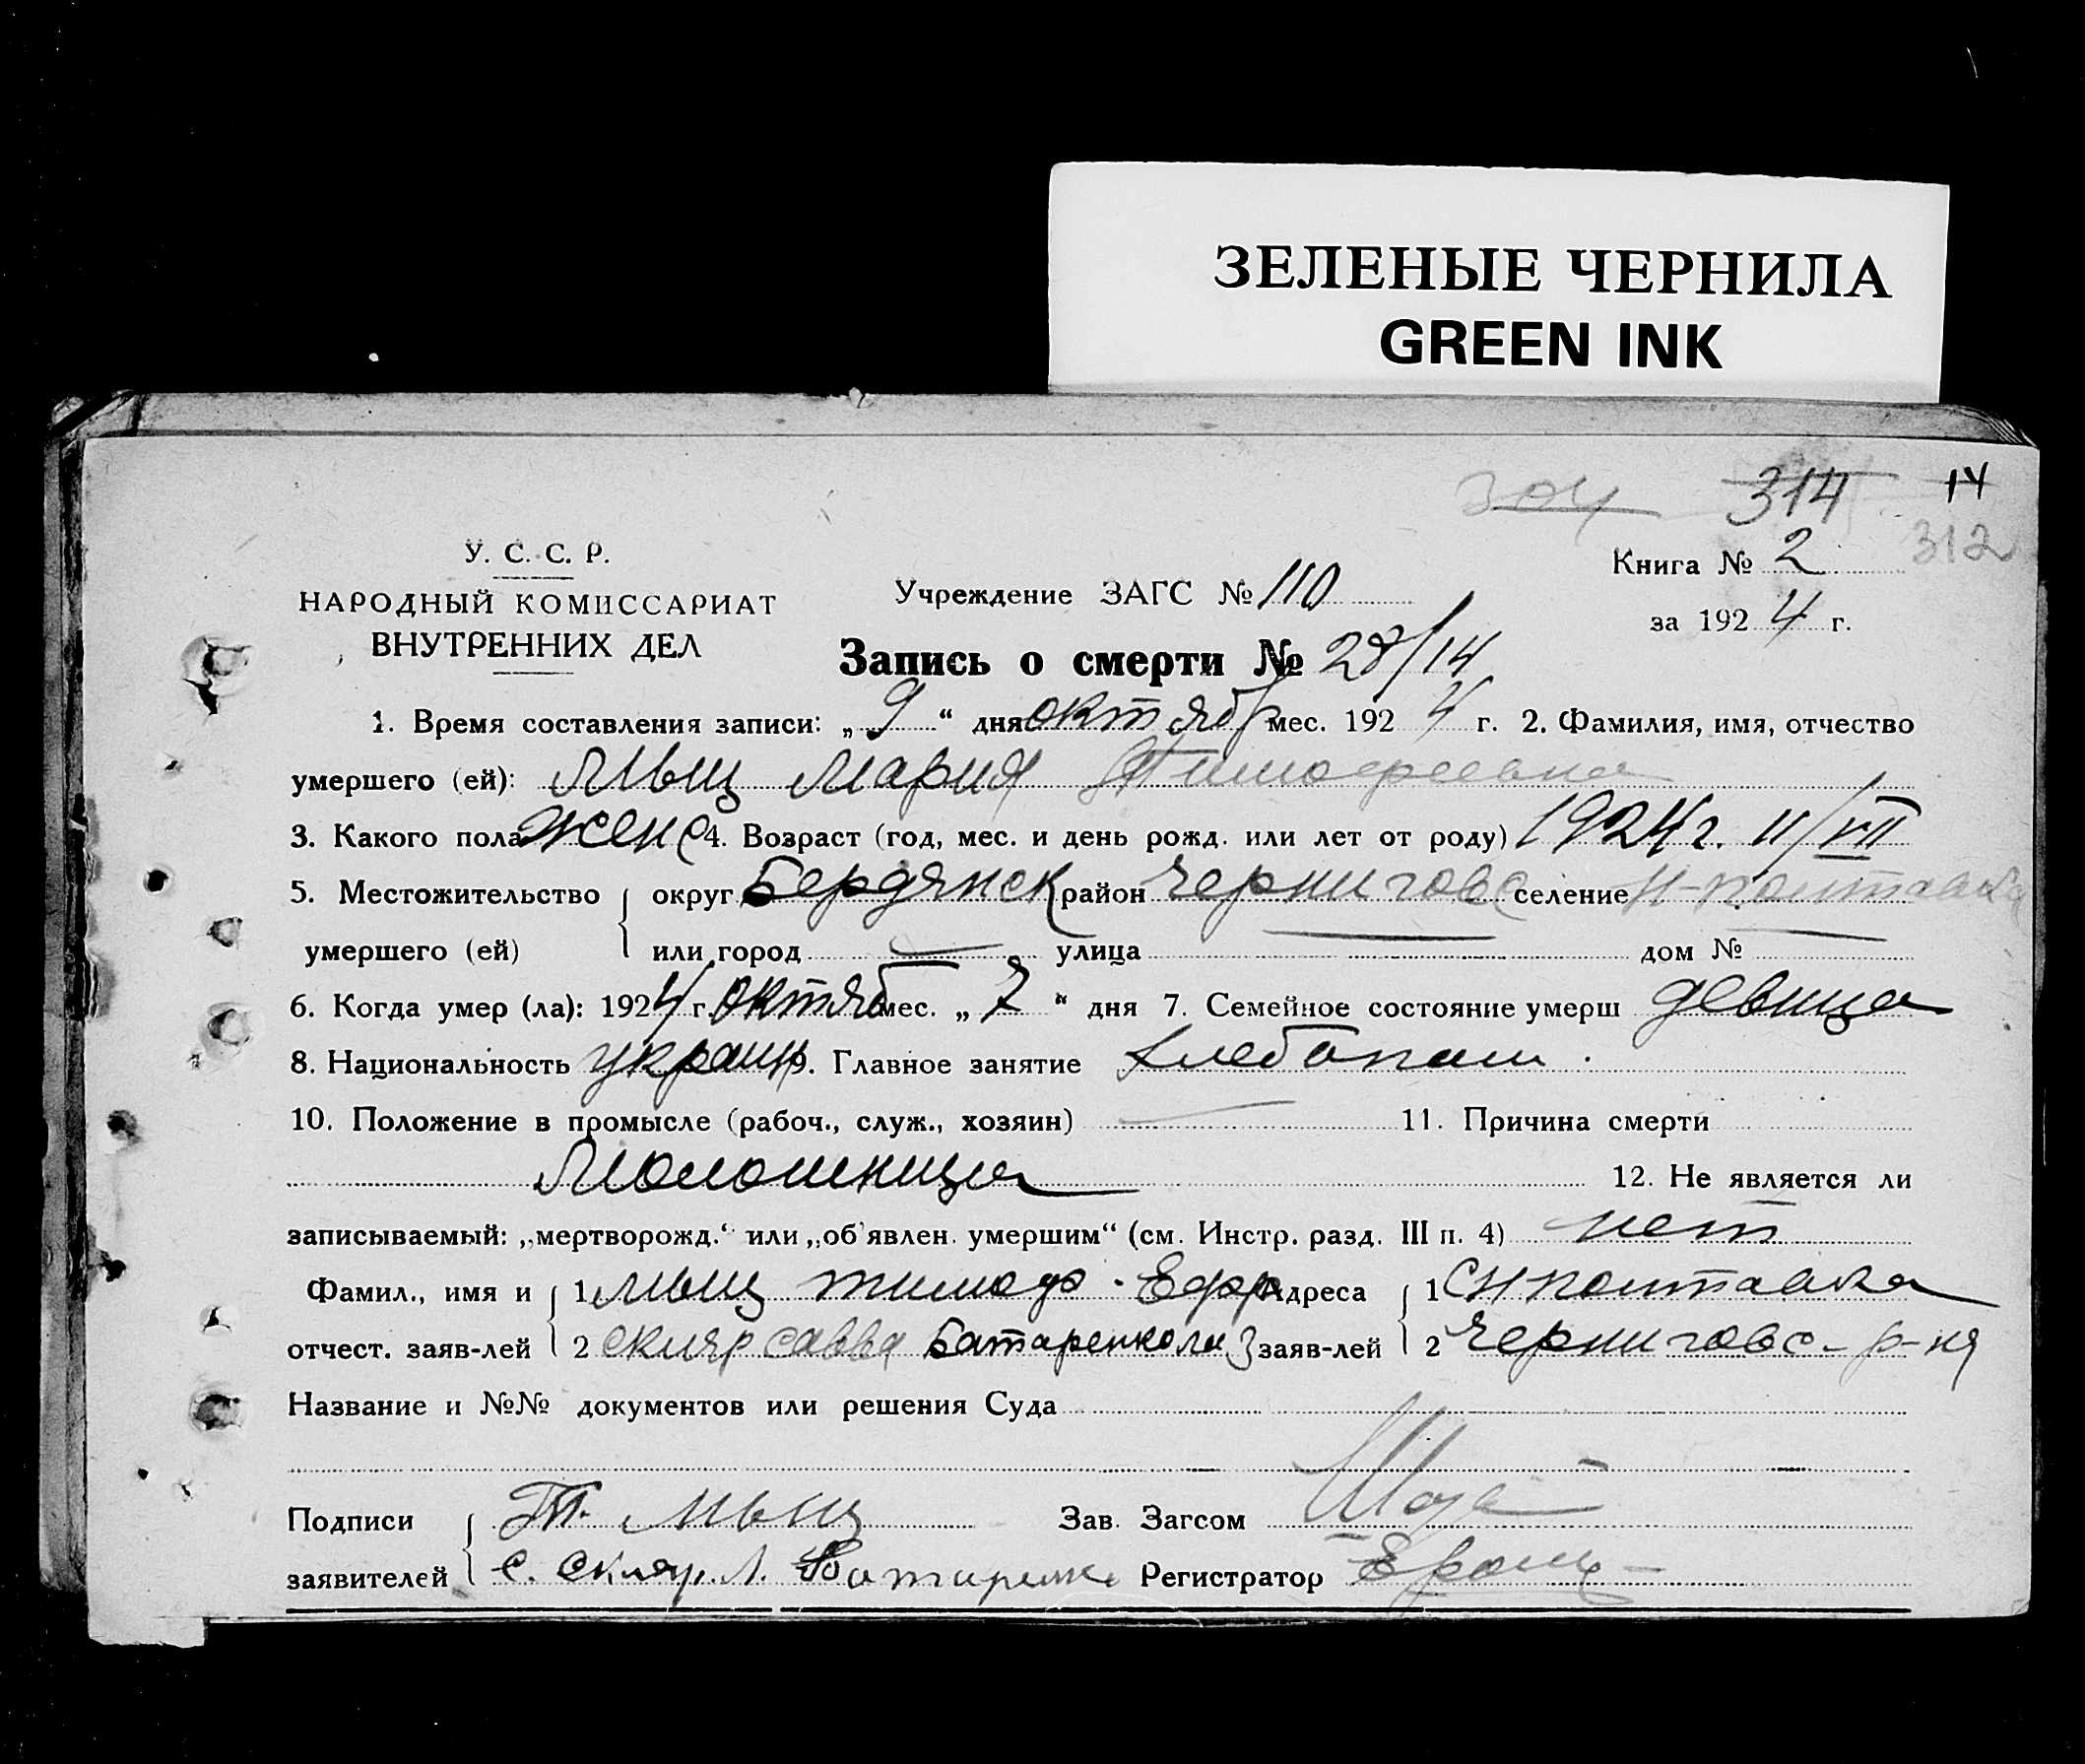 ЗЕЛЕНЫЕ ЧЕРНИЛА
GREEN INK
304 314 14
312
У. С. С. Р.
НАРОДНЫЙ КОМИССАРИАТ
ВНУТРЕННИХ ДЕЛ
Учреждение ЗАГС № 110
Книга № 2
за 1924 г.
Запись о смерти № 28/14
1. Время составления записи: „9“ дня октябр мес. 1924 г. 2. Фамилия, имя, отчество
умершего (ей): Мыц Мария Тимофеевна
3. Какого пола женс 4. Возраст (год, мес. и день рожд. или лет от роду) 1924 г. 11/VII
5. Местожительство округ Бердянск район Черниговс селение Н-Полтавка
умершего (ей) или город — улица дом №
6. Когда умер (ла): 1924 г. октяб мес. „7“ дня 7. Семейное состояние умерш девица
8. Национальность украин 9. Главное занятие хлебопаш.
10. Положение в промысле (рабоч., служ., хозяин) — 11. Причина смерти
Молошница 12. Не является ли
записываемый: „мертворожд.“ или „об'явлен. умершим“ (см. Инстр. разд. III п. 4) нет
Фамил., имя и 1 Мыц Тимоф. Ефр Адреса 1 С Н Полтавка
отчест. заяв-лей 2 Скляр Савва Батаренко заяв-лей 2 Черниговс-р-на
Название и №№ документов или решения Суда
Подписи Т. Мыц Зав. Загсом
заявителей С. Скляр. Л. Батаренко Регистратор